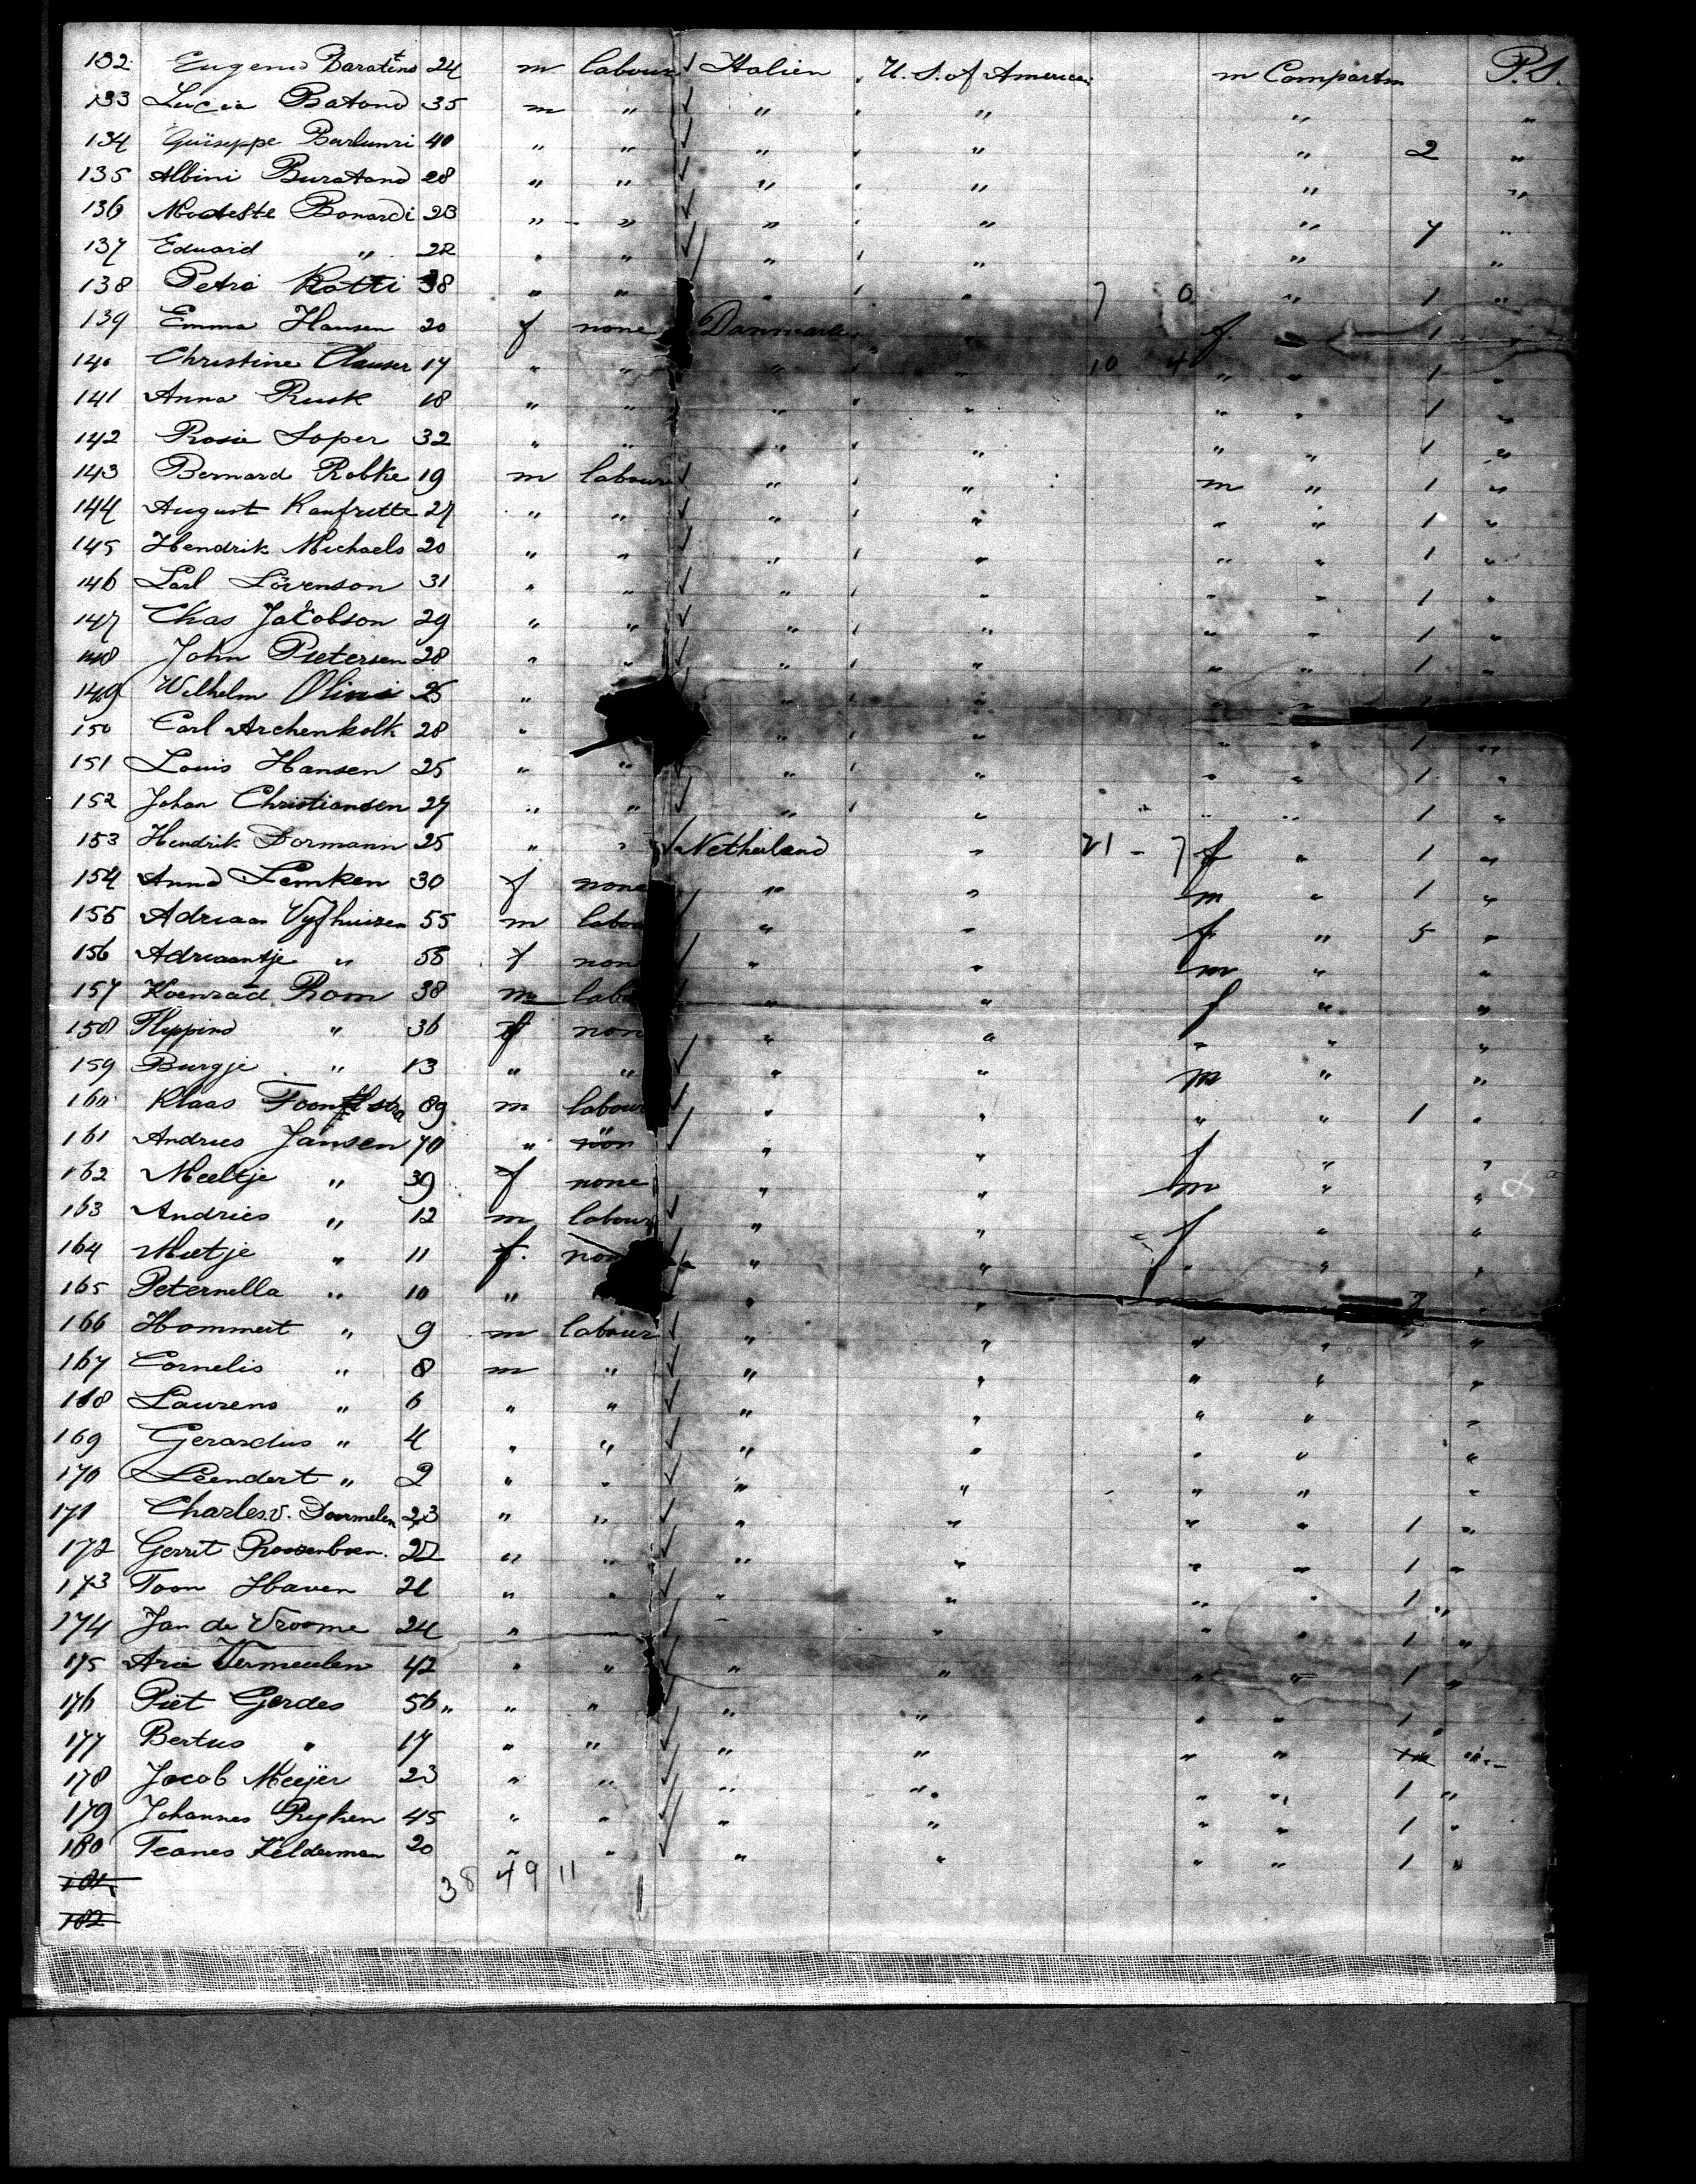 132 Eugenio Baratino 24 m labour ✓ Italien U. S. of America m Compartm P.S.
133 Lucia Batono 35 m " ✓ " " " "
134 Guiseppe Barlunri 40 " " ✓ " " " 2 "
135 Albini Buratono 28 " " ✓ " " " "
136 Modeste Bonardi 23 " " ✓ " " " 7 "
137 Eduard " 22 " " ✓ " " " "
138 Petro Ratti 38 " " " " 7 0 " 1 "
139 Emma Hansen 20 f none Danmark " f. " 1 "
140 Christine Clauser 17 " " " " 10 4 " " 1 "
141 Anna Rusk 18 " " " " " " 1 "
142 Rosie Soper 32 " " " " " " 1 "
143 Bernard Robke 19 m labour ✓ " " m " 1 "
144 August Kanfrutte 27 " " ✓ " " " " 1 "
145 Hendrik Michaels 20 " " ✓ " " " " 1 "
146 Carl Lövenson 31 " " ✓ " " " " 1 "
147 Chas Jacobson 29 " " ✓ " " " " 1 "
148 John Pietersen 28 " " ✓ " " " " 1 "
149 Wilhelm Olini 25 " " " " " 1
150 Carl Archenkolk 28 " " " " " 1 "
151 Louis Hansen 25 " " ✓ " " " " 1 "
152 Johan Christiansen 27 " " ✓ " " " " 1 "
153 Hendrik Dormann 25 " " ✓ Netherland " 21 - 7 f " 1 "
154 Anna Lemken 30 f none ✓ " " m " 1 "
155 Adriaan Vyfhuizen 55 m labou " " f " 5 "
156 Adriaantje " 55 f non ✓ " " m " "
157 Koenrad Rom 38 m labo " " f " "
158 " 36 f non " " " " "
159 Burgje " 13 " " ✓ " " m " "
160 Klaas 89 m labour ✓ " " " " 1 "
161 Andries Jansen 70 " non ✓ " " f " "
162 Meeltje " 39 f none " " m " "
163 Andries " 12 m labour ✓ " " f " "
164 Mietje " 11 f. non ✓ " " " " "
165 Peternella " 10 " " " "
166 Hommert " 9 m labour ✓ " " " " " "
167 Cornelis " 8 m " ✓ " " " " "
168 Laurens " 6 " " ✓ " " " " "
169 Gerardus " 4 " " ✓ " " " " "
170 Leendert " 2 " " ✓ " " " " "
171 Charles v. Doormelen 23 " " ✓ " " " " 1 "
172 Gerrit Roosenboen. 22 " " ✓ " " " " 1 "
173 Toon Haven 21 " " ✓ " " " " 1 "
174 Jan de Vroome 24 " ✓ " " " 1 "
175 Arie Vermeulen 42 " " ✓ " " " " 1 "
176 Piet Gerdes 56 " " " " " " " 1 "
177 Bertus " 17 " " ✓ " " " " "
178 Jacob Meijer 23 " " ✓ " " " " 1 "
179 Johannes Ryken 45 " " ✓ " " " " 1 "
180 Teanes Kelderman 20 " " ✓ " " " " 1 "
181 38 49 11
182